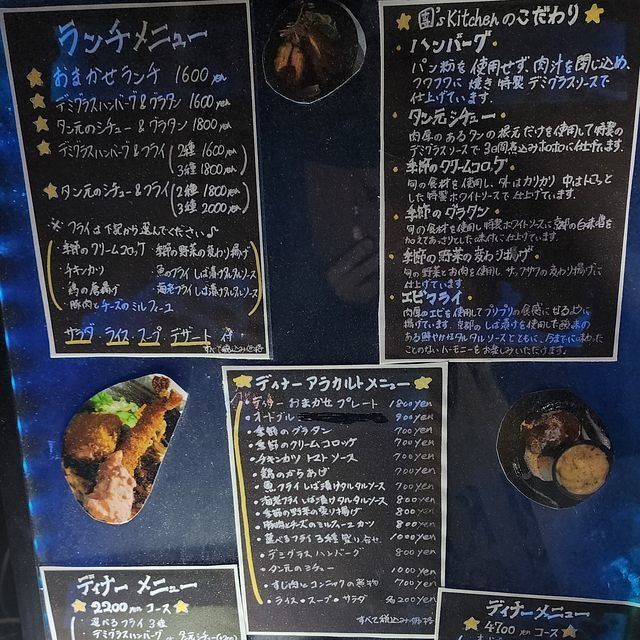 ランチメニュー
おまかせランチ 1600yen
デミグラスハンバーグ&グラタン 1600yen
タン元のシチュー&グラタン 1800yen
デミグラスハンバーグ&フライ(2種 1600yen
3種 1800yen)
タン元のシチュー&フライ(2種 1800yen
3種 2000yen)
※フライは下記から選んでください♪
・季節のクリームコロッケ ・季節の野菜の変わり揚げ
・チキンカツ ・魚のフライ しば漬けタルタルソース
・鶏の唐揚げ ・海老フライ しば漬けタルタルソース
・豚肉とチーズのミルフィーユ
サラダ・ライス・スープ・デザート 付
すべて税込み価格
's Kitchenのこだわり
・ハンバーグ・
パン粉を使用せず、肉汁を閉じ込め、
フワフワに焼き特製デミグラスソースで
仕上げています。
・タン元シチュー・
肉厚のあるタンの根元だけを使用して特製の
デミグラスソースで3日間煮込みホロホロに仕上げます。
・季節のクリームコロッケ・
旬の食材を使用し、外はカリカリ 中はトロっと
した特製ホワイトソースで仕上げています。
・季節のグラタン・
旬の食材を使用し特製ホワイトソースに京都の白味噌を
加えてあっさりとした味付けに仕上げています。
・季節の野菜の変わり揚げ・
旬の野菜とお肉を使用し サックサクの変わり揚げに
仕上げています
・エビフライ・
肉厚のエビを使用してプリプリの食感になるように
揚げています。京都のしば漬けを使用した酸味の
ある鮮やかなタルタルソースとともに、今までに味わった
ことのないハーモニーをお楽しみいただけます。
ディナー アラカルトメニュー
・ディナーおまかせプレート 1800yen
・オードブル 900yen
・季節のグラタン 700yen
・季節のクリームコロッケ 700yen
・チキンカツ トマトソース 700yen
・鶏のからあげ 700yen
・魚フライ しば漬けタルタルソース 700yen
・海老フライ しば漬けタルタルソース 800yen
・季節の野菜の変り揚げ 800yen
・豚肉とチーズのミルフィーユカツ 800yen
・選べるフライ3種盛り合せ 1000yen
・デミグラスハンバーグ 800yen
・タン元のシチュー 1000yen
・すじ肉とコンニャクの煮物 700yen
・ライス・スープ・サラダ 各200yen
すべて税込み価格
ディナーメニュー
2200yenコース
・選べるフライ3種
・デミグラスハンバーグ or タン元シチュー
ディナーメニュー
4700yenコース